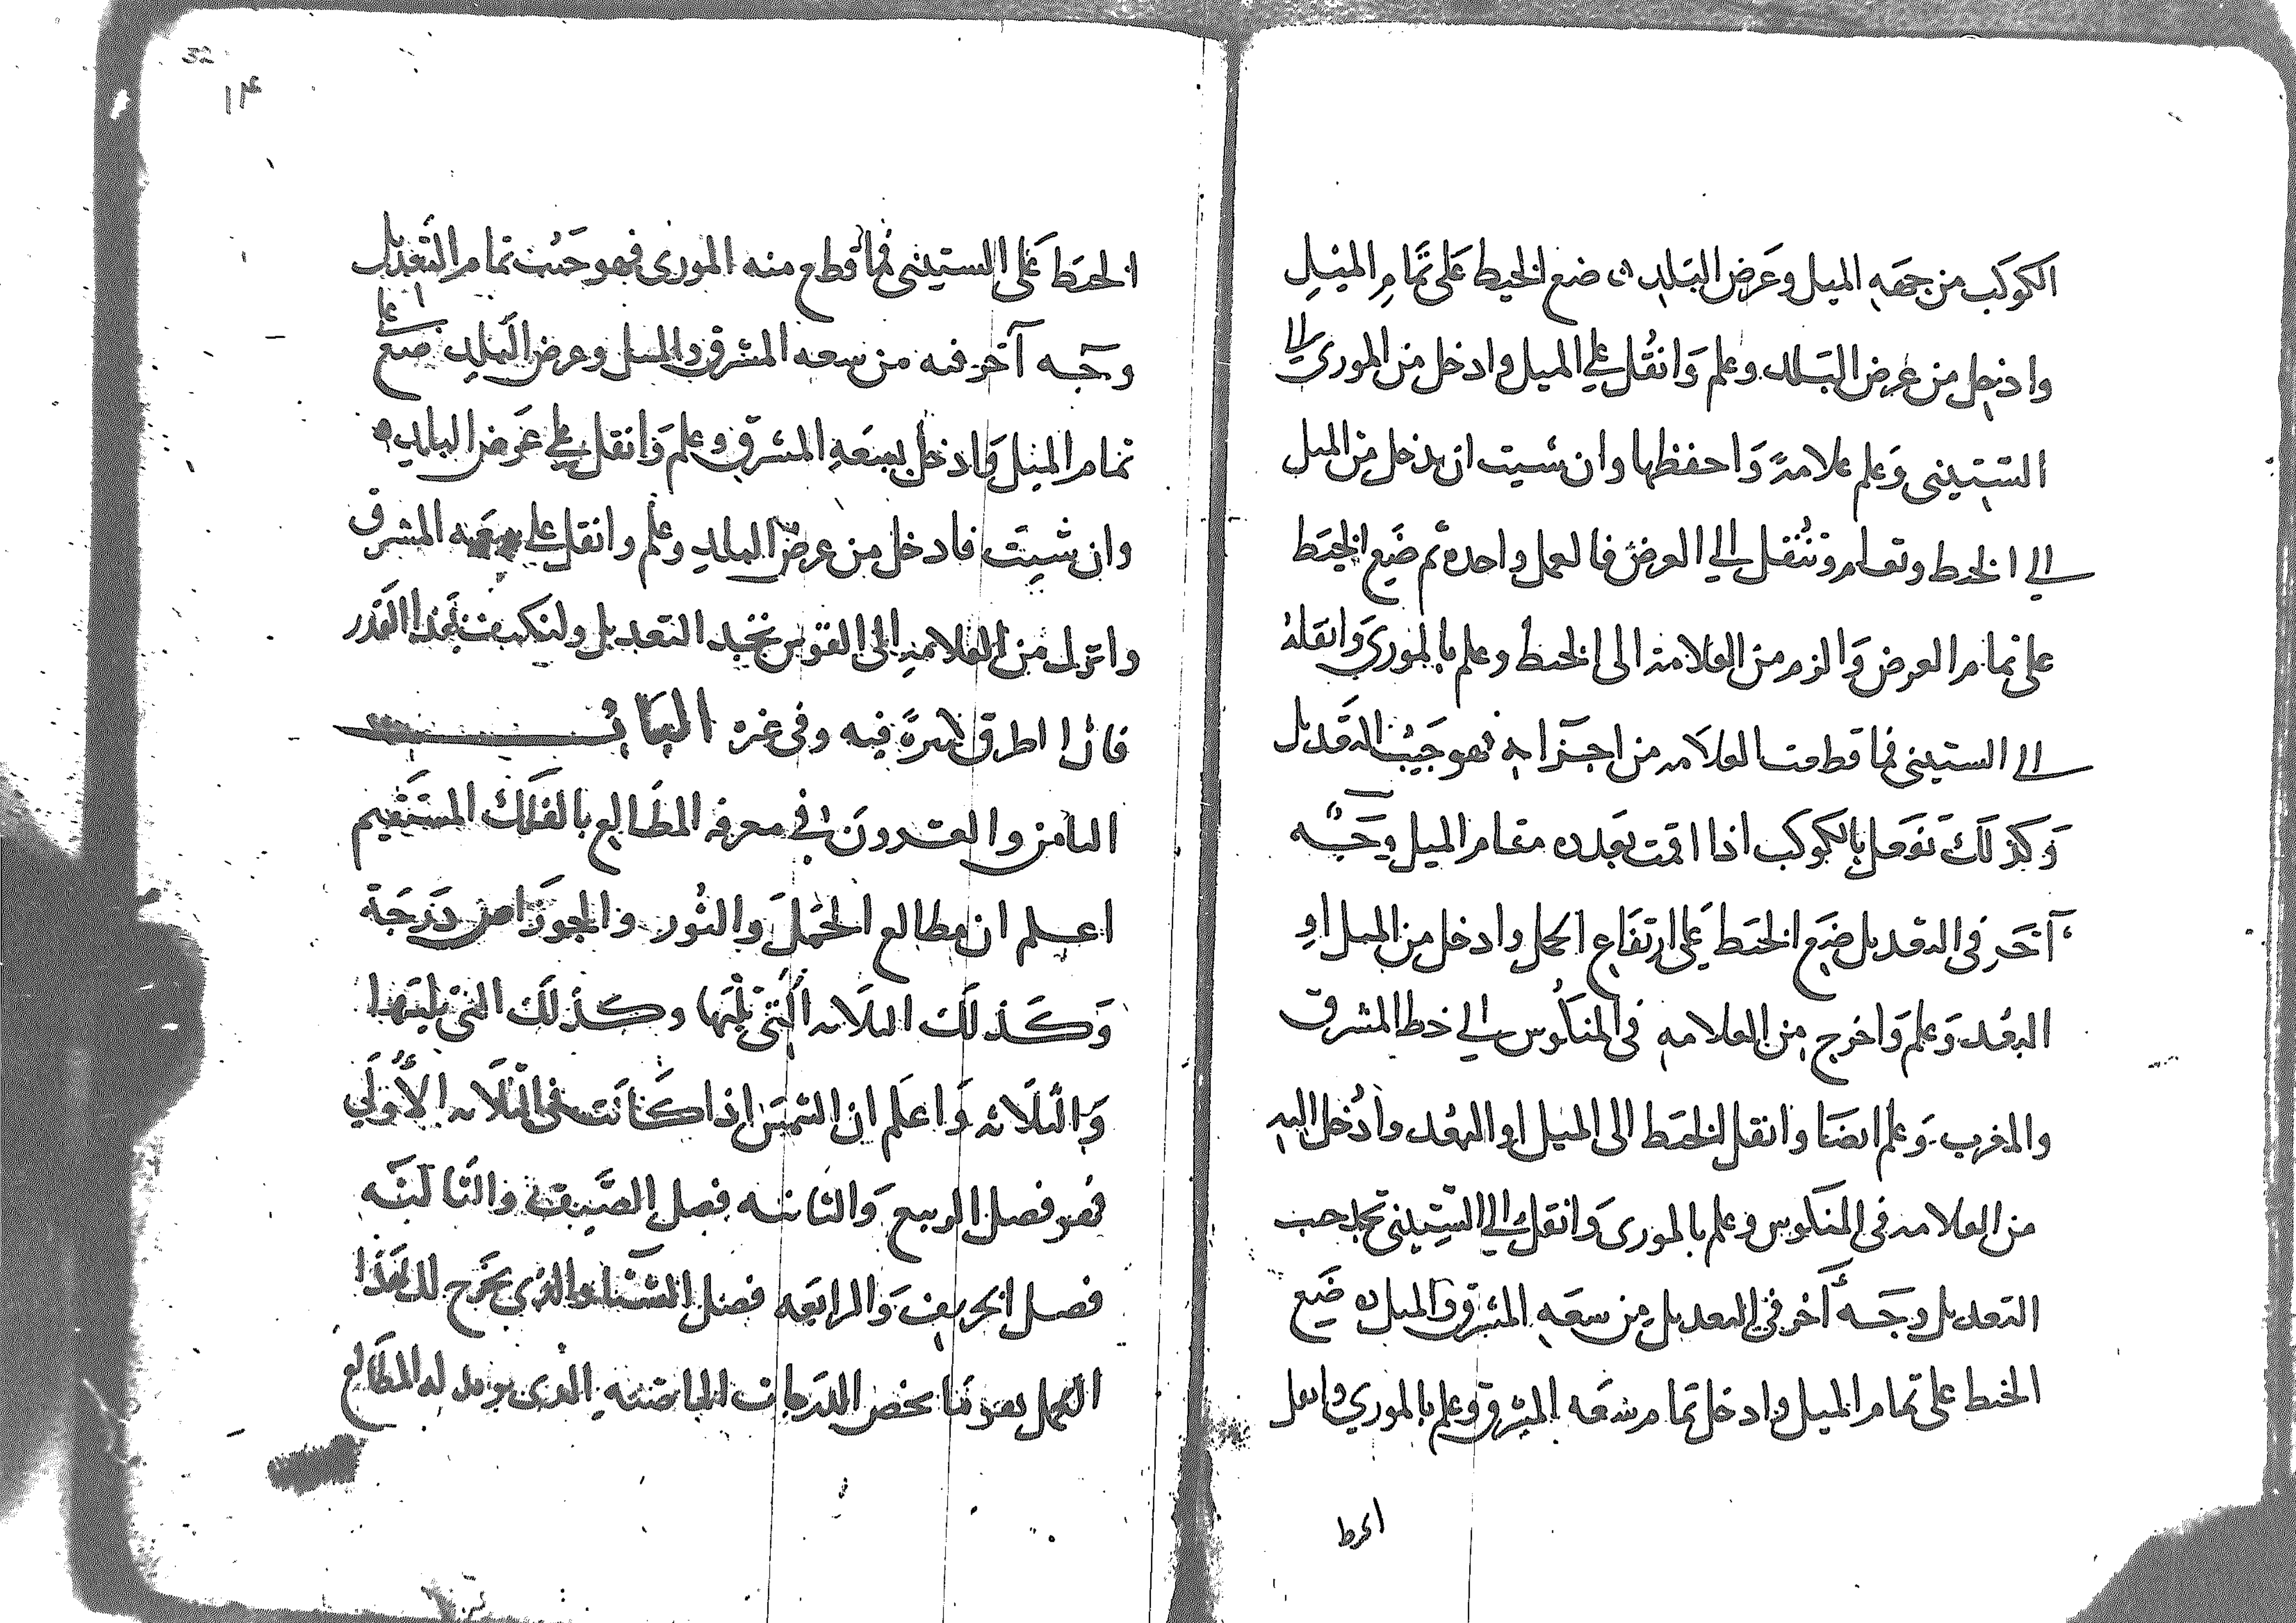 الكوكب من جهة الميل وعرض البلد ضع الخيط على تمام الميل
وادخل من عرض البلد وعلم وانقل على الميل وادخل من الموري الى
الستيني وعلم علامة واحفظها وان شيت ان تدخل من الميل
الي الخيط وتعلم وتنتقل الي العرض فالعمل واحد ثم ضع الخيط
على تمام العرض والزم من العلامة الى الخيط وعلم بالموري وانقله
الي الستيني فما قطعت العلامه من اجزايه فهو جيب التعديل
وكذلك تفعل بالكوكب اذا اقمت بعده مقام الميل وجه
آخر في التعديل ضع الخيط على ارتفاع الحمل وادخل من الميل او
البعد وعلم واخرج من العلامه في المنكوس الي خط المشرق
والمغرب وعلم ايضا وانقل الخيط الى الميل او البعد وادخل اليه
من العلامه في المنكوس وعلم بالموري وانقل الي الستيني تجد جيب
التعديل وجه آخر في التعديل من سعة المشرق والميل ضع
الخيط على تمام الميل وادخل تمام سعه المشرق وعلم بالموري وانقل
الخيط
32
١٤
الخيط على الستيني فما قطع منه الموري فهو جيب تمام التعديل
وجه آخر فيه من سعه المشرق والميل وعرض البلد ضع على
تمام الميل وادخل بسعة المشرق وعلم وانقل على عرض البلد
وان شيت فادخل من عرض البلد وعلم وانقل على سعه المشرق
وانزل من العلامه الى القوس تجد التعديل ولنكتف بهذا القدر
فان الطرق كثيرة فيه وفي غيره الباب
الثامن والعشرون في معرفه المطالع بالفلك المستقيم
اعلم ان مطالع الحمل والثور والجوزا ص درجة
وكذلك الثلاثه التي تليها وكذلك التي تليها
والثلاثه واعلم ان الشمس اذا كانت في الثلاثه الأولى
فهو فصل الربيع والثانيه فصل الصيف والثالثه
فصل الخريف والرابعه فصل الشتا والذي يخرج لك بهذا
العمل هو ما يخص الدرجات الماضيه الذي له المطالع